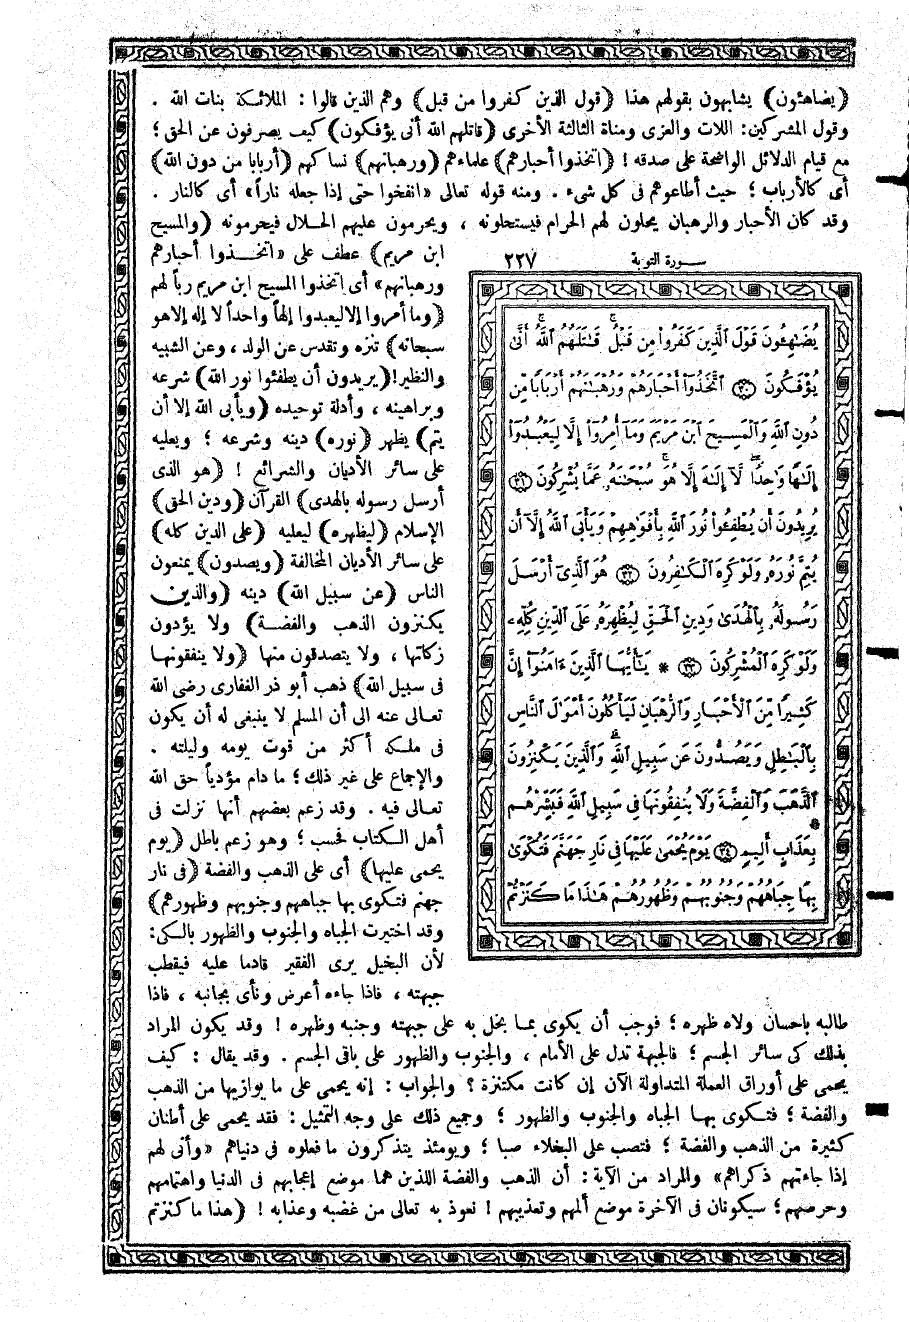 (يضاهئون) يشابهون بقولهم هذا (قول الذين كفروا من قبل) وهم الذين قالوا : الملائكة بنات الله .
وقول المشركين: اللات والعزى ومناة الثالثة الأخرى (قاتلهم الله أنى يؤفكون) كيف يصرفون عن الحق ؛
مع قيام الدلائل الواضحة على صدقه ! (اتخذوا أحبارهم) علماءهم (ورهبانهم) نساكهم (أربابا من دون الله)
أى كالأرباب ؛ حيث أطاعوهم فى كل شىء . ومنه قوله تعالى «انفخوا حتى إذا جعله ناراً» أى كالنار .
وقد كان الأحبار والرهبان يحلون لهم الحرام فيستحلونه ، ويحرمون عليهم الحلال فيحرمونه (والمسيح
ابن مريم) عطف على «اتخذوا أحبارهم
ورهبانهم» أى اتخذوا المسيح ابن مريم رباً لهم
(وما أمروا إلا ليعبدوا إلهاً واحداً لا إله إلا هو
سبحانه) تنزه وتقدس عن الولد ، وعن الشبيه
والنظير! (يريدون أن يطفئوا نور الله) شرعه
وبراهينه ، وأدلة توحيده (ويأبى الله إلا أن
يتم) يظهر (نوره) دينه وشرعه ؛ ويعليه
على سائر الأديان والشرائع ! (هو الذى
أرسل رسوله بالهدى) القرآن (ودين الحق)
الإسلام (ليظهره) ليعليه (على الدين كله)
على سائر الأديان المخالفة (ويصدون) يمنعون
الناس (عن سبيل الله) دينه (والذين
يكنزون الذهب والفضة) ولا يؤدون
زكاتها ، ولا يتصدقون منها (ولا ينفقونها
فى سبيل الله) ذهب أبو ذر الغفارى رضى الله
تعالى عنه الى أن المسلم لا ينبغى له أن يكون
فى ملكه أكثر من قوت يومه وليلته .
والإجماع على غير ذلك ؛ ما دام مؤدياً حق الله
تعالى فيه . وقد زعم بعضهم أنها نزلت فى
أهل الكتاب فحسب ؛ وهو زعم باطل (يوم
يحمى عليها) أى على الذهب والفضة (فى نار
جهنم فتكوى بها جباههم وجنوبهم وظهورهم)
وقد اختيرت الجباه والجنوب والظهور بالكى:
لأن البخيل يرى الفقير قادما عليه فيقطب
جبهته ، فاذا جاءه أعرض ونأى بجانبه ، فاذا
سورة التوبة ٢٢٧
يُضَٰهِـُٔونَ قَوْلَ ٱلَّذِينَ كَفَرُوا۟ مِن قَبْلُ ۚ قَٰتَلَهُمُ ٱللَّهُ ۚ أَنَّىٰ
يُؤْفَكُونَ ﴿٣٠﴾ ٱتَّخَذُوٓا۟ أَحْبَارَهُمْ وَرُهْبَٰنَهُمْ أَرْبَابًا مِّن
دُونِ ٱللَّهِ وَٱلْمَسِيحَ ٱبْنَ مَرْيَمَ وَمَآ أُمِرُوٓا۟ إِلَّا لِيَعْبُدُوٓا۟
إِلَٰهًا وَٰحِدًا ۖ لَّآ إِلَٰهَ إِلَّا هُوَ ۚ سُبْحَٰنَهُۥ عَمَّا يُشْرِكُونَ ﴿٣١﴾
يُرِيدُونَ أَن يُطْفِـُٔوا۟ نُورَ ٱللَّهِ بِأَفْوَٰهِهِمْ وَيَأْبَى ٱللَّهُ إِلَّآ أَن
يُتِمَّ نُورَهُۥ وَلَوْ كَرِهَ ٱلْكَٰفِرُونَ ﴿٣٢﴾ هُوَ ٱلَّذِىٓ أَرْسَلَ
رَسُولَهُۥ بِٱلْهُدَىٰ وَدِينِ ٱلْحَقِّ لِيُظْهِرَهُۥ عَلَى ٱلدِّينِ كُلِّهِۦ
وَلَوْ كَرِهَ ٱلْمُشْرِكُونَ ﴿٣٣﴾ * يَٰٓأَيُّهَا ٱلَّذِينَ ءَامَنُوٓا۟ إِنَّ
كَثِيرًا مِّنَ ٱلْأَحْبَارِ وَٱلرُّهْبَانِ لَيَأْكُلُونَ أَمْوَٰلَ ٱلنَّاسِ
بِٱلْبَٰطِلِ وَيَصُدُّونَ عَن سَبِيلِ ٱللَّهِ ۗ وَٱلَّذِينَ يَكْنِزُونَ
ٱلذَّهَبَ وَٱلْفِضَّةَ وَلَا يُنفِقُونَهَا فِى سَبِيلِ ٱللَّهِ فَبَشِّرْهُم
بِعَذَابٍ أَلِيمٍ ﴿٣٤﴾ يَوْمَ يُحْمَىٰ عَلَيْهَا فِى نَارِ جَهَنَّمَ فَتُكْوَىٰ
بِهَا جِبَاهُهُمْ وَجُنُوبُهُمْ وَظُهُورُهُمْ هَٰذَا مَا كَنَزْتُمْ
طالبه باحسان ولاه ظهره ؛ فوجب أن يكوى بما بخل به على جبهته وجنبه وظهره ! وقد يكون المراد
بذلك كى سائر الجسم ؛ فالجبهة تدل على الأمام ، والجنوب والظهور على باقى الجسم . وقد يقال : كيف
يحمى على أوراق العملة المتداولة الآن إن كانت مكتنزة ؟ والجواب : إنه يحمى على ما يوازيها من الذهب
والفضة ؛ فتكوى بها الجباه والجنوب والظهور ؛ وجميع ذلك على وجه التمثيل : فقد يحمى على أطنان
كثيرة من الذهب والفضة ؛ فتصب على البخلاء صبا ؛ ويومئذ يتذكرون ما فعلوه فى دنياهم «وأنى لهم
إذا جاءتهم ذكراهم» والمراد من الآية : أن الذهب والفضة اللذين هما موضع إعجابهم فى الدنيا واهتمامهم
وحرصهم ؛ سيكونان فى الآخرة موضع ألمهم وتعذيبهم ! نعوذ به تعالى من غضبه وعذابه ! (هذا ما كنزتم